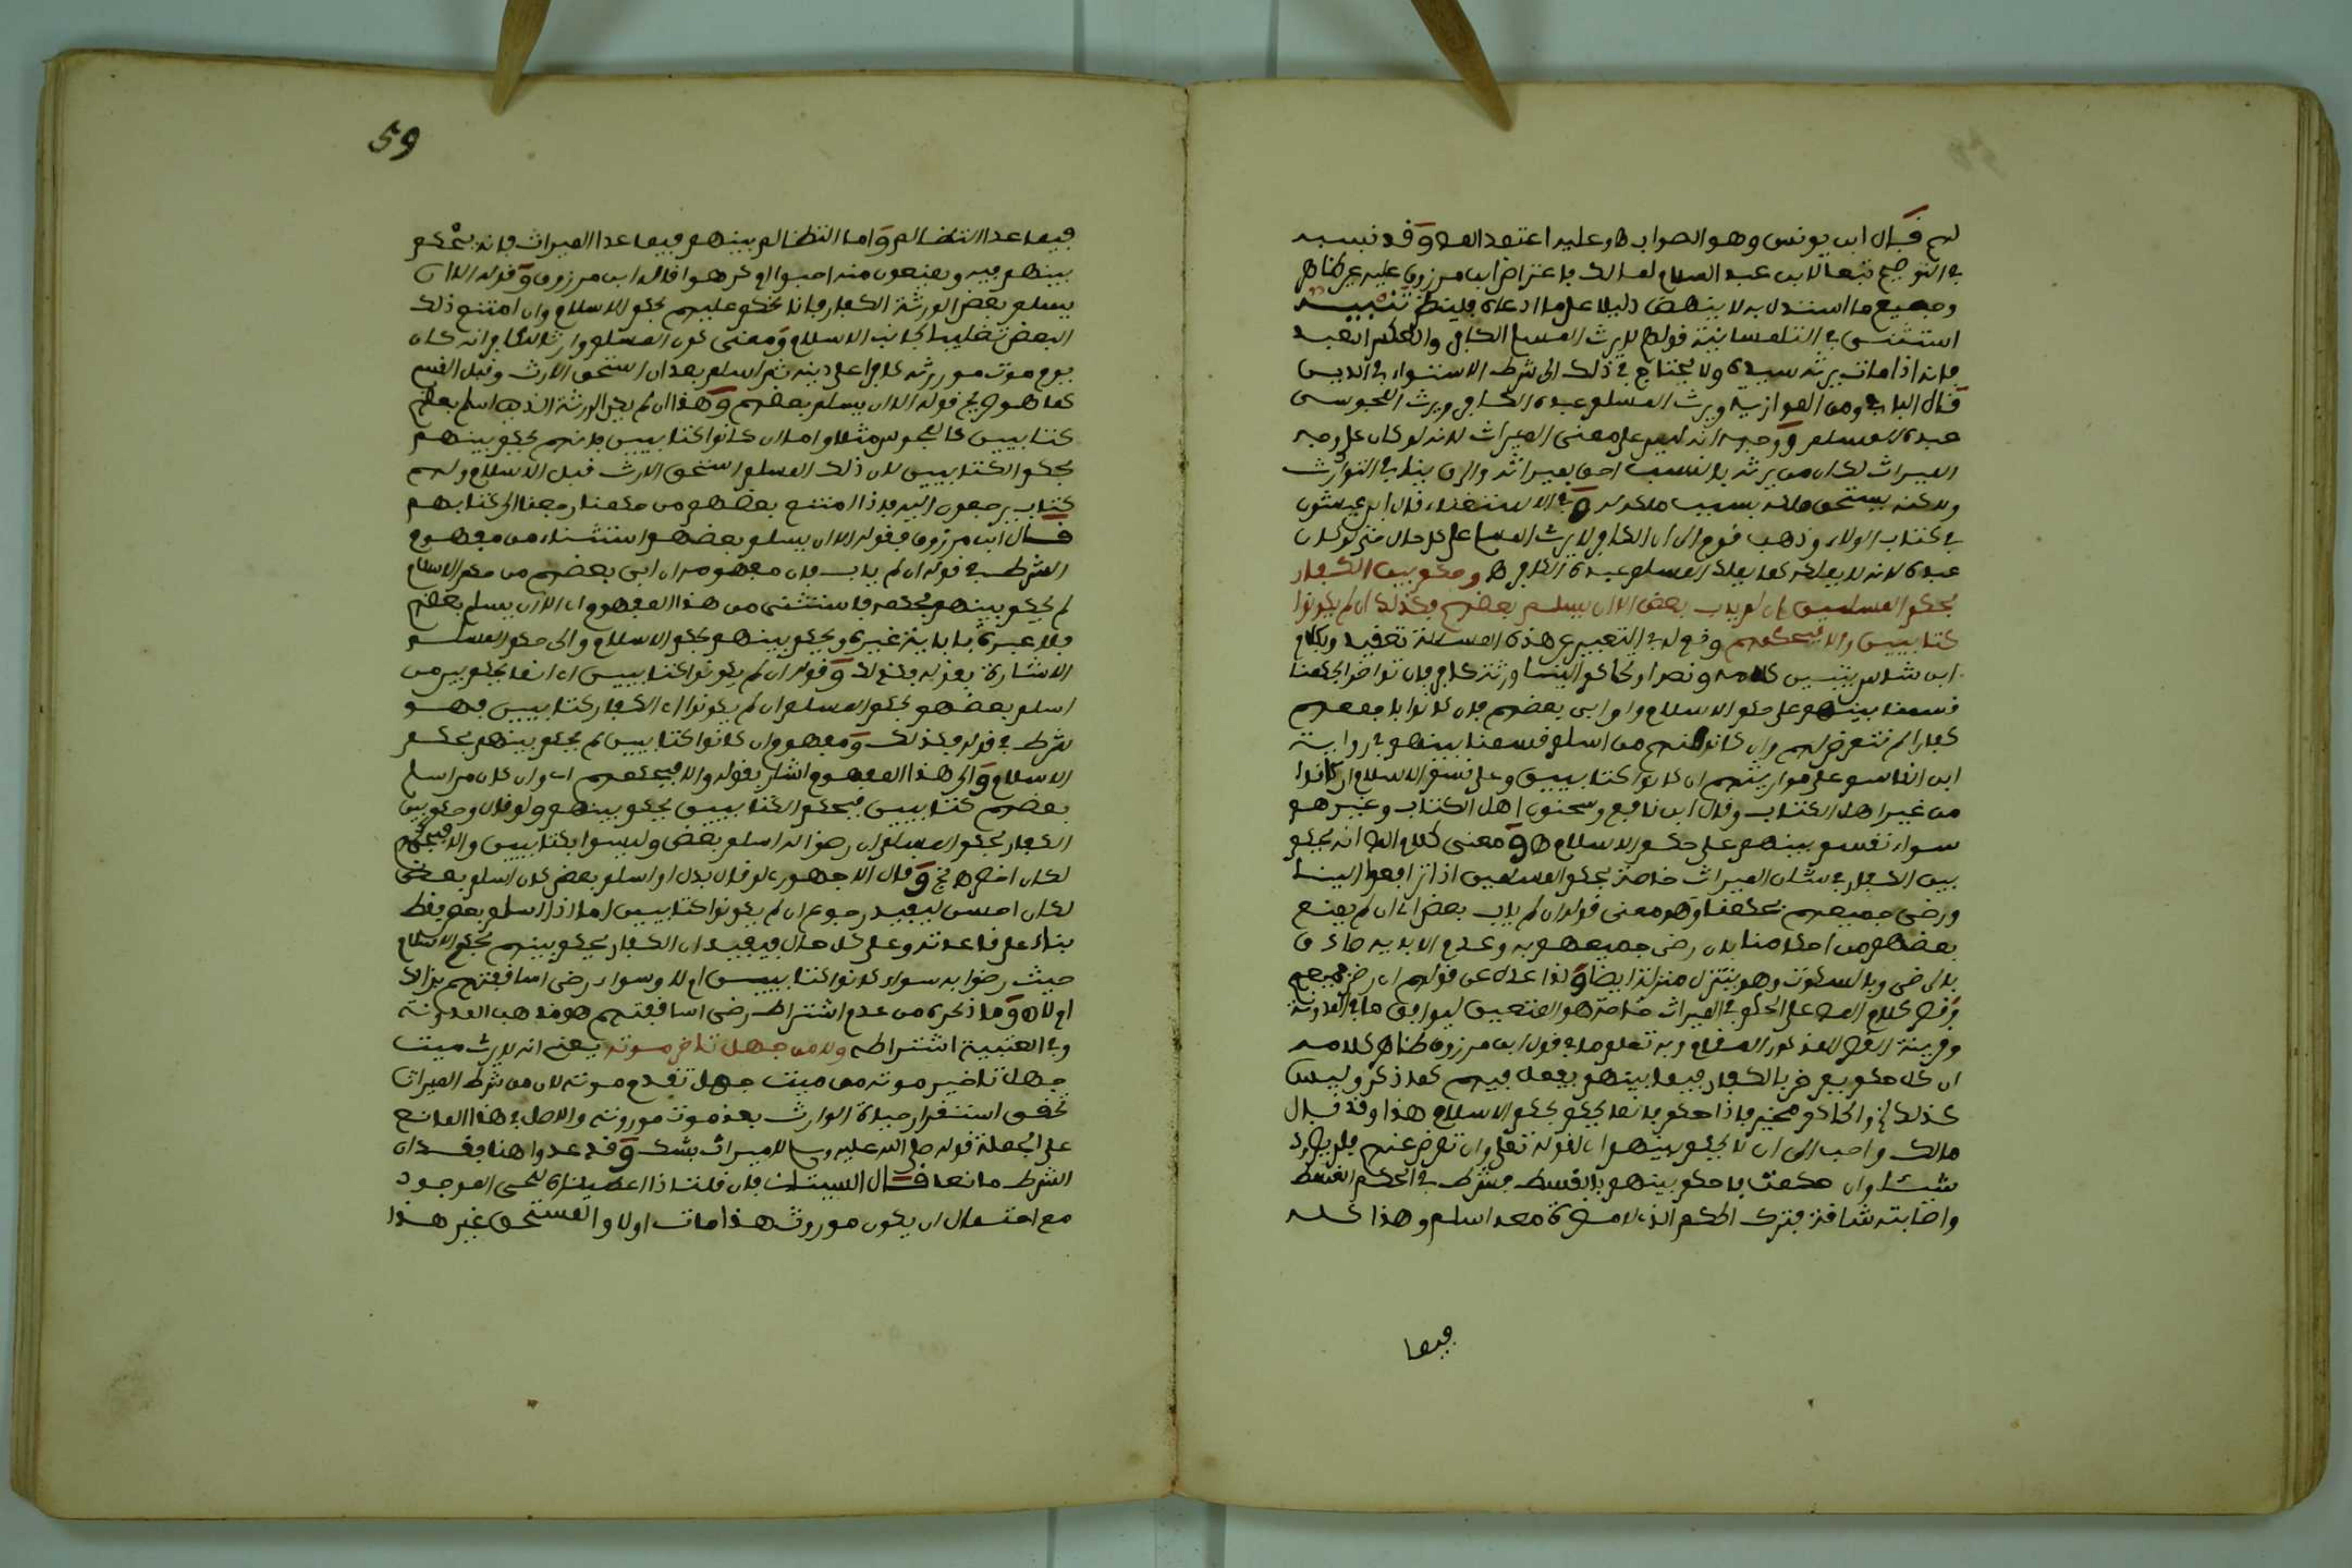 لهم قال ابن يونس وهو الصواب اه وعليه اعتمد المص وقد نسبه
في التوضيح تبعا لابن عبد السلام لمالك فاعتراض ابن مرزوق عليه غير ظاهر
وجميع ما استدل به لا ينهض دليلا على ما ادعاه فلينظر تنبيه
استثنى في التلمسانية قولهم لا يرث المسلم الكافر والعكس العبد
فانه اذا مات يرثه سيده ولا يحتاج في ذلك الى شرط الاستواء في الدين
قال الباجي ومن الموازية ويرث المسلم عبده الكافر ويرث المجوسي
عبده المسلم ووجهه انه ليس على معنى الميراث لانه لو كان على وجه
الميراث لكان من يرثه بالنسب احق بميراثه والرق ينافي التوارث
ولاكنه يستحق ماله بسبب ملكه له وفي الاستغناء قال ابن عيشون
في كتاب الولاء وذهب قوم الى ان الكافر لا يرث المسلم على كل حال حتى لو كان
عبده لانه لا يملكه كما يملك المسلم عبده الكافر اه وحكم بين الكفار
بحكم المسلمين ان لم ياب بعض الا ان يسلم بعضهم فكذلك ان لم يكونوا
كتابيين والا فبحكمهم وقوله في التعبير عن هذه المسئلة تعقيد وبكلام
ابن شاس يتبين كلامه ونصه او تحاكم الينا ورثة كافر فان تراضوا بحكمنا
قسمنا بينهم على حكم الاسلام وان ابى بعضهم فان كانوا باجمعهم
كفارا لم نتعرض لهم وان كان منهم من اسلم قسمنا بينهم في رواية
ابن القاسم على مواريثهم ان كانوا كتابيين وعلى قسم الاسلام ان كانوا
من غير اهل الكتاب وقال ابن نافع وسحنون اهل الكتاب وغيرهم
سواء نقسم بينهم على حكم الاسلام اه ومعنى كلام المص انه يحكم
بين الكفار في شان الميراث خاصة بحكم المسلمين اذا ترافعوا الينا
ورضى جميعهم بحكمنا وهو معنى قوله ان لم ياب بعض اي ان لم يمتنع
بعضهم من احكامنا بان رضى جميعهم به وعدم الاباية صادق
بالرضى وبالسكوت وهو يتنزل منزلته ايضا ولذا عدل عن قولهم ان رضي جميعهم
وقصر كلام المص على الحكم في الميراث خاصة هو المتعين ليوافق ما في المدونة
وقرينة القصر المذكور المقام وبه تعلم ما في قول ابن مرزوق ظاهر كلامه
ان كل حكم يعرض بالكفار فيما بينهم يفعل فيهم كما ذكر وليس
كذلك والحاكم مخير فاذا حكم فانما يحكم بحكم الاسلام هذا وقد قال
مالك واحب الي ان لا يحكم بينهم اي لقوله تعلى وان تعرض عنهم فلن يضروك
شيئا وان حكمت فاحكم بينهم بالقسط فشرط في الحكم القسط
واصابته شاقة فترك الحكم الذي لا مضرة معه اسلم وهذا كله
فيما
59
فيما عدا التظالم واما التظالم بينهم فيما عدا الميراث فانه يحكم
بينهم فيه ويمنعون منه احبوا او كرهوا قاله ابن مرزوق وقوله الا ان
يسلم بعض الورثة الكفار فانا نحكم عليهم بحكم الاسلام وان امتنع ذلك
البعض تغليبا لجانب الاسلام ومعنى كون المسلم وارثا للكافر انه كان
يوم موت مورثه كافرا على دينه ثم اسلم بعد ان استحق الارث وقبل القسم
كما هو صريح قوله الا ان يسلم بعضهم وهذا ان لم يكن الورثة الذين اسلم بعضهم
كتابيين كالمجوس مثلا واما ان كانوا كتابيين فانهم يحكم بينهم
بحكم الكتابيين لان ذلك المسلم استحق الارث قبل الاسلام ولهم
كتاب يرجعون اليه فاذا امتنع بعضهم من حكمنا رجعنا الى كتابهم
قال ابن مرزوق فقوله الا ان يسلم بعضهم استثناء من مفهوم
الشرط في قوله ان لم ياب فان مفهومه ان ابى بعضهم من حكم الاسلام
لم يحكم بينهم بحكمه فاستثنى من هذا المفهوم اي الا ان يسلم بعضهم
فلا عبرة باباية غيره ويحكم بينهم بحكم الاسلام والى حكم المسلم
الاشارة بقوله فكذلك وقوله ان لم يكونوا كتابيين اي انما يحكم بين من
اسلم بعضهم بحكم المسلم ان لم يكونوا اي الكفار كتابيين فهو
شرط في قوله فكذلك ومفهومه وان كانوا كتابيين لم يحكم بينهم بحكم
الاسلام والى هذا المفهوم اشار بقوله والا فبحكمهم اي وان كان من اسلم
بعضهم كتابيين فبحكم الكتابيين يحكم بينهم ولو قال وحكم بين
الكفار بحكم المسلم ان رضوا او اسلم بعض وليسوا بكتابيين والا فبحكمهم
لكان اخصر اه تح وقال الاجهوري لو قال بدل او اسلم بعض كان اسلم بعض
لكان احسن ليفيد رجوع ان لم يكونوا كتابيين لما اذا اسلم بعض فقط
بناء على قاعدته وعلى كل حال فيفيد ان الكفار يحكم بينهم بحكم الاسلام
حيث رضوا به سواء كانوا كتابيين ام لا وسواء رضى اساقفتهم بذلك
ام لا اه وما ذكره من عدم اشتراط رضى اساقفتهم هو مذهب المدونة
وفي العتبية اشتراطه ولا من جهل تاخر موته يعنى انه لا يرث ميت
جهل تاخير موته من ميت جهل تقدم موته لان من شرط الميراث
تحقق استقرار حياة الوارث بعد موت موروثه والاصل في هذا المانع
على الجملة قوله صلى الله عليه وسلم لا ميراث بشك وقد عدوا هنا فقدان
الشرط مانعا قال البستان فان قلت اذا اعطيناه للحي الموجود
مع احتمال ان يكون موروث هذا مات اولا والمستحق غير هذا